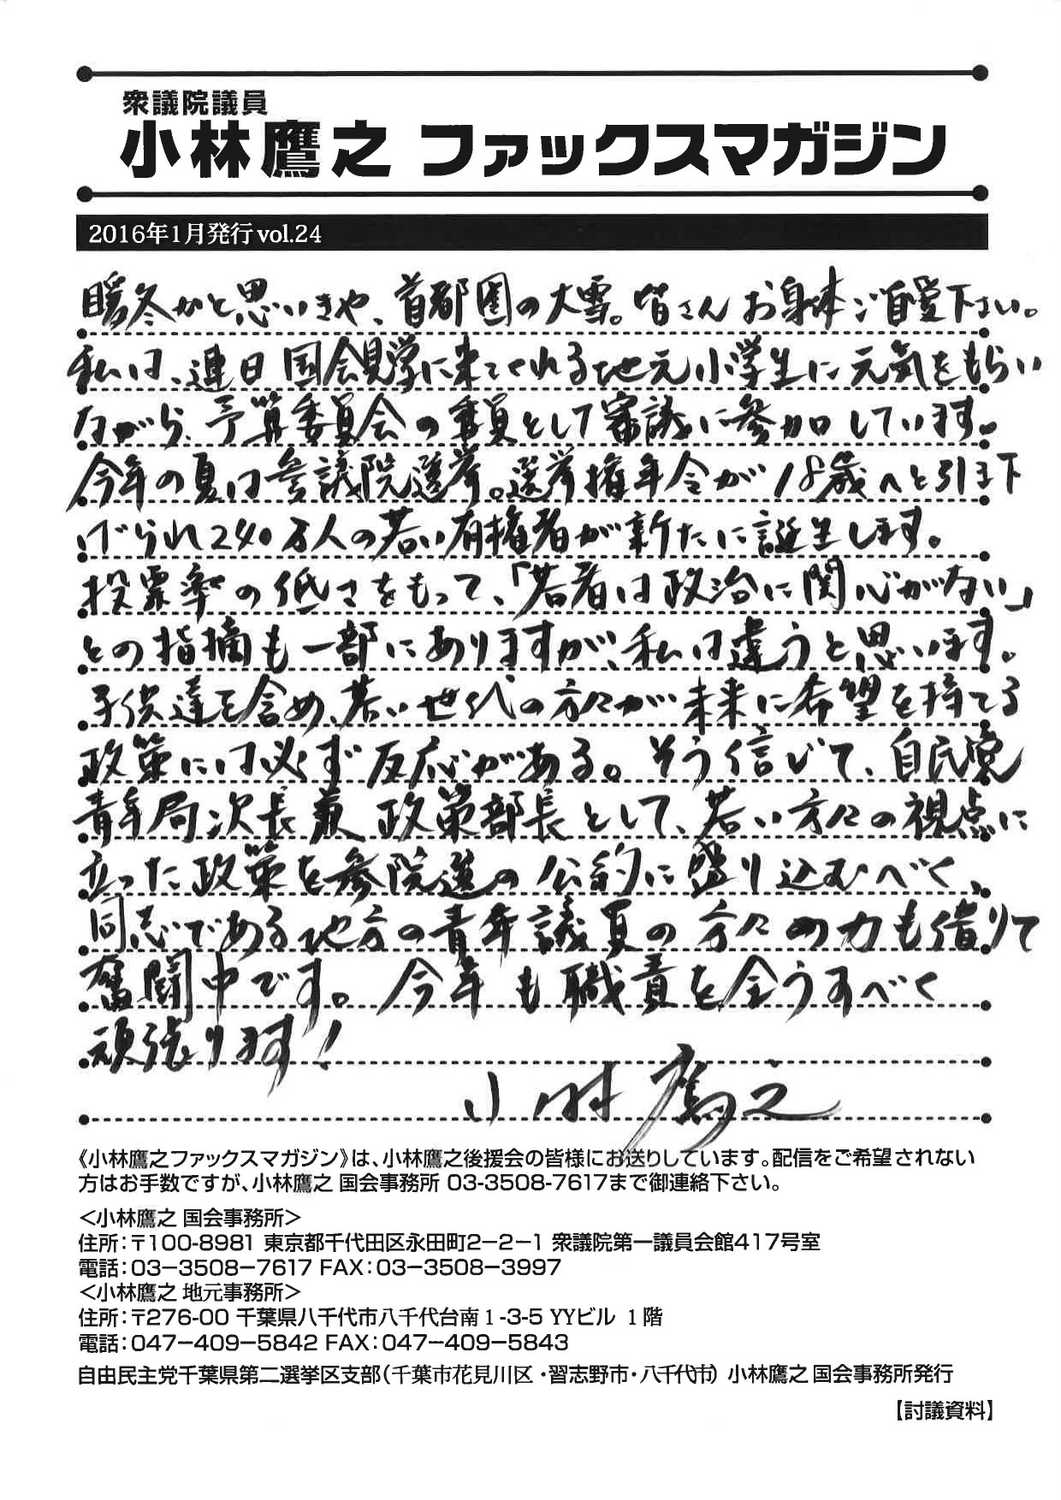 衆議院議員
小林鷹之 ファックスマガジン
2016年1月発行 vol.24
暖冬かと思いきや、首都圏の大雪。皆さんお身体ご自愛下さい。
私は、連日国会見学に来てくれる地元小学生に元気をもらい
ながら、予算委員会の委員として審議に参加しています。
今年の夏は参議院選挙。選挙権年令が18歳へと引き下
げられ240万人の若い有権者が新たに誕生します。
投票率の低さをもって、「若者は政治に関心がない」
との指摘も一部にありますが、私は違うと思います。
子供達を含め、若い世代の方々が未来に希望を持てる
政策には必ず反応がある。そう信じて、自民党
青年局次長兼政策部長として、若い方々の視点に
立った政策を参院選の公約に盛り込むべく、
同志である地方の青年議員の方々の力も借りて
奮闘中です。今年も職責を全うすべく
頑張ります!
小林鷹之
《小林鷹之ファックスマガジン》は、小林鷹之後援会の皆様にお送りしています。配信をご希望されない
方はお手数ですが、小林鷹之 国会事務所 03-3508-7617まで御連絡下さい。
＜小林鷹之 国会事務所＞
住所：〒100-8981 東京都千代田区永田町2−2−1 衆議院第一議員会館417号室
電話：03−3508−7617 FAX：03−3508−3997
＜小林鷹之 地元事務所＞
住所：〒276-00 千葉県八千代市八千代台南1-3-5 YYビル 1階
電話：047−409−5842 FAX：047−409−5843
自由民主党千葉県第二選挙区支部（千葉市花見川区・習志野市・八千代市） 小林鷹之 国会事務所発行
【討議資料】